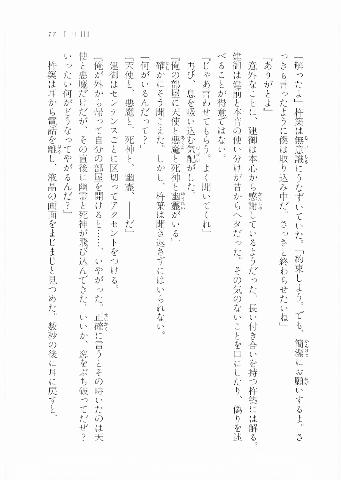 「解ったよ」梓葉は無意識にうなずいていた。「約束しよう。でも、簡潔にお願いするよ。さ
っきも言ったように僕は取り込み中だ。さっさと終わらせたいね」
「ありがとよ」
　意外なことに、建御は本心から感謝しているようだった。長い付き合いを持つ梓葉には解る。
建御は建前と本音の使い分けが昔からヘタだった。その気のないことを口にしたり、偽りを述
べることが得意ではない。
「じゃあ言わせてもらう。よく聞いてくれ」
　ちび、息を吸い込む気配がした。
「俺の部屋に天使と悪魔と死神と幽霊がいる」
　確かにそう聞こえた。しかし、梓葉は聞き返さずにはいられない。
「何がいるんだって？」
「天使と、悪魔と、死神と、幽霊、――だ」
　建御はセンテンスごとに区切ってアクセントをつける。
「俺が外から帰って自分の部屋を開けると……、いやがった。正確に言うとその時いたのは天
使と悪魔だけだが、その直後に幽霊と死神が飛び込んできた。いいか、窓をぶち破ってだぜ？
いったい何がどうなってやがるんだ？」
　梓葉は耳から電話を離し、液晶の画面をまじまじと見つめた。数秒の後に耳に戻すと、